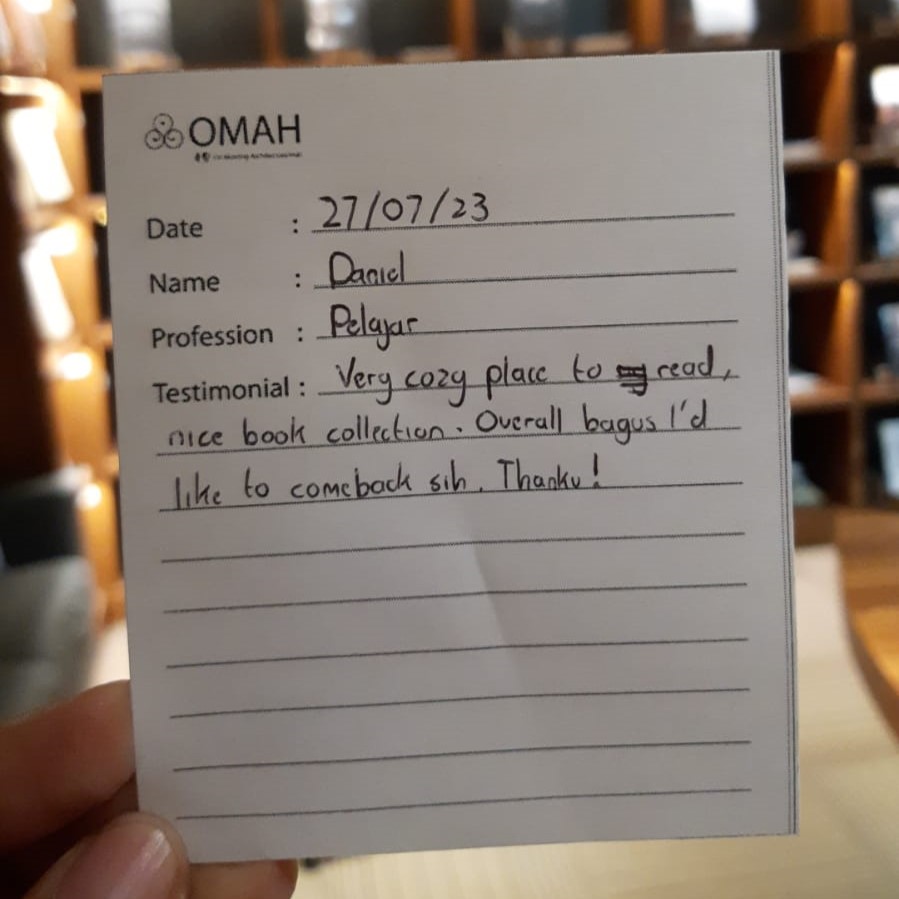 OMAH
Date : 27/07/23
Name : Daniel
Profession : Pelajar
Testimonial : Very cozy place to read,
nice book collection. Overall bagus I'd
like to comeback sih. Thanku!